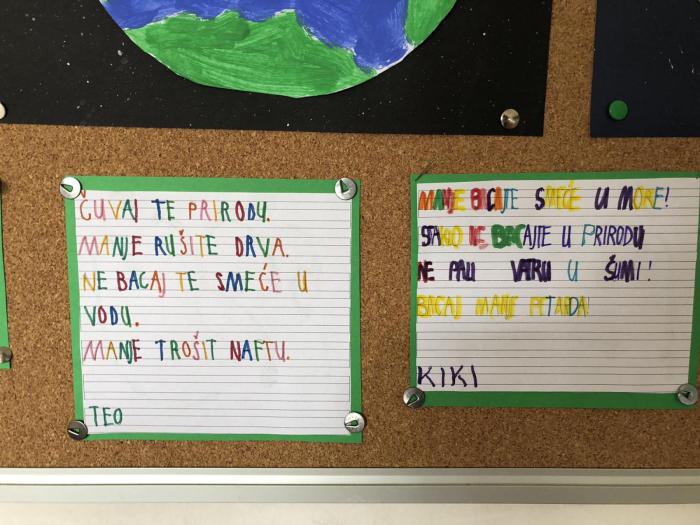 ČUVAJ TE PRIRODU.
MANJE RUŠITE DRVA.
NE BACAJ TE SMEĆE U
VODU.
MANJE TROŠIT NAFTU.
TEO
MANJE BACAJTE SMEĆE U MORE!
STAKLO NE BACAJTE U PRIRODU
NE PALI VATRU U ŠUMI!
BACAJ MANJE PETARDA!
KIKI